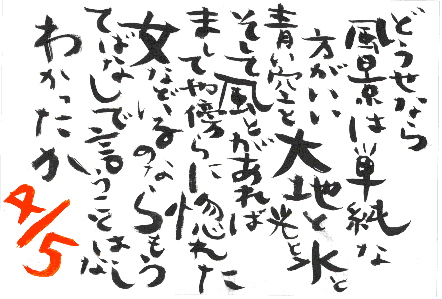 どうせなら
風景は単純な
方がいい
大地と水と
青い空と光と
そして風とがあれば
ましてや傍らに惚れた
女などいるのならもう
てばなしで言うことはなし
わかったか
4/5